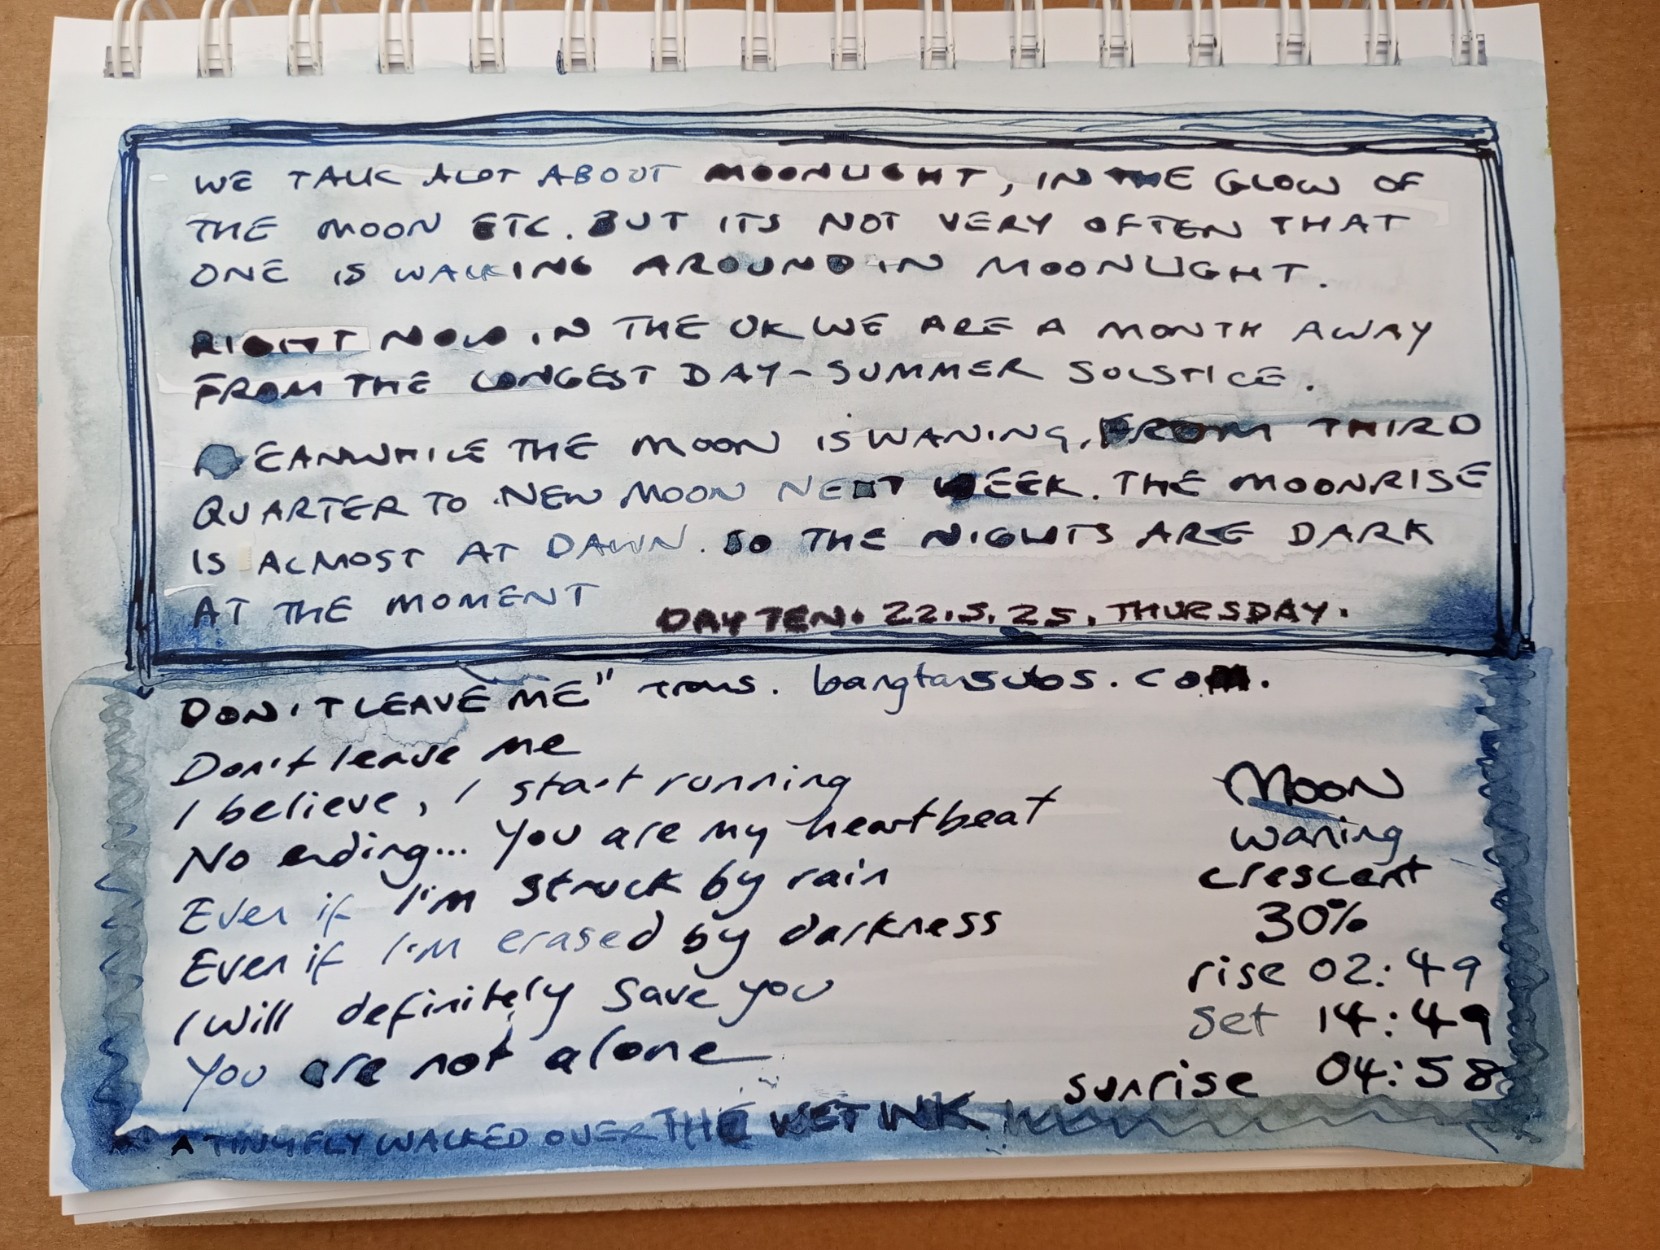 WE TALK ALOT ABOUT MOONLIGHT, IN THE GLOW OF
THE MOON ETC. BUT ITS NOT VERY OFTEN THAT
ONE IS WALKING AROUND IN MOONLIGHT.
RIGHT NOW IN THE UK WE ARE A MONTH AWAY
FROM THE LONGEST DAY - SUMMER SOLSTICE.
MEANWHILE THE MOON IS WANING, FROM THIRD
QUARTER TO NEW MOON NEXT WEEK. THE MOONRISE
IS ALMOST AT DAWN. SO THE NIGHTS ARE DARK
AT THE MOMENT
DAY TEN. 22.5.25. THURSDAY.
DON'T LEAVE ME" trans. bangtansubs.com.
Don't leave me
I believe, I start running
No ending... You are my heartbeat
Even if I'm struck by rain
Even if I'm erased by darkness
I will definitely save you
You are not alone
Moon
waning
crescent
30%
rise 02:49
set 14:49
sunrise 04:58
A TINY FLY WALKED OVER THE WET INK